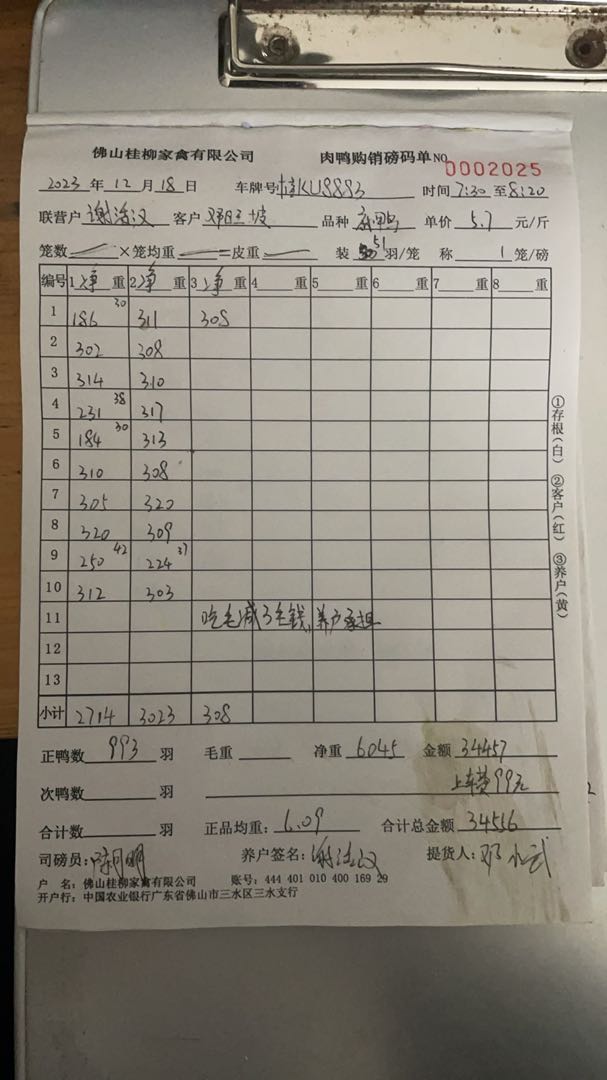 佛山桂柳家禽有限公司 肉鸭购销磅码单 NO 0002025
2023 年 12 月 18 日 车牌号 桂KU9883 时间 7:30 至 8:20
联营户 谢洁汉 客户 坡 品种 麻鸭 单价 5.7 元/斤
笼数 × 笼均重 = 皮重 装 51 羽/笼 称 1 笼/磅
编号 1 净 重 2 净 重 3 净 重 4 重 5 重 6 重 7 重 8 重
1 186 30 311 308
2 302 308
3 314 310
4 231 38 317
5 184 30 313
6 310 308
7 305 320
8 320 309
9 250 42 224 37
10 312 303
11 吃毛减3毛钱,养户承担
12
13
小计 2714 3023 308
正鸭数 993 羽 毛重 净重 6045 金额 34457
次鸭数 羽 上车费99元
合计数 羽 正品均重: 6.09 合计总金额 34556
司磅员: 陈明 养户签名: 谢洁汉 提货人: 邓小武
户 名: 佛山桂柳家禽有限公司 账号: 444 401 010 400 169 29
开户行: 中国农业银行广东省佛山市三水区三水支行
①存根(白) ②客户(红) ③养户(黄)